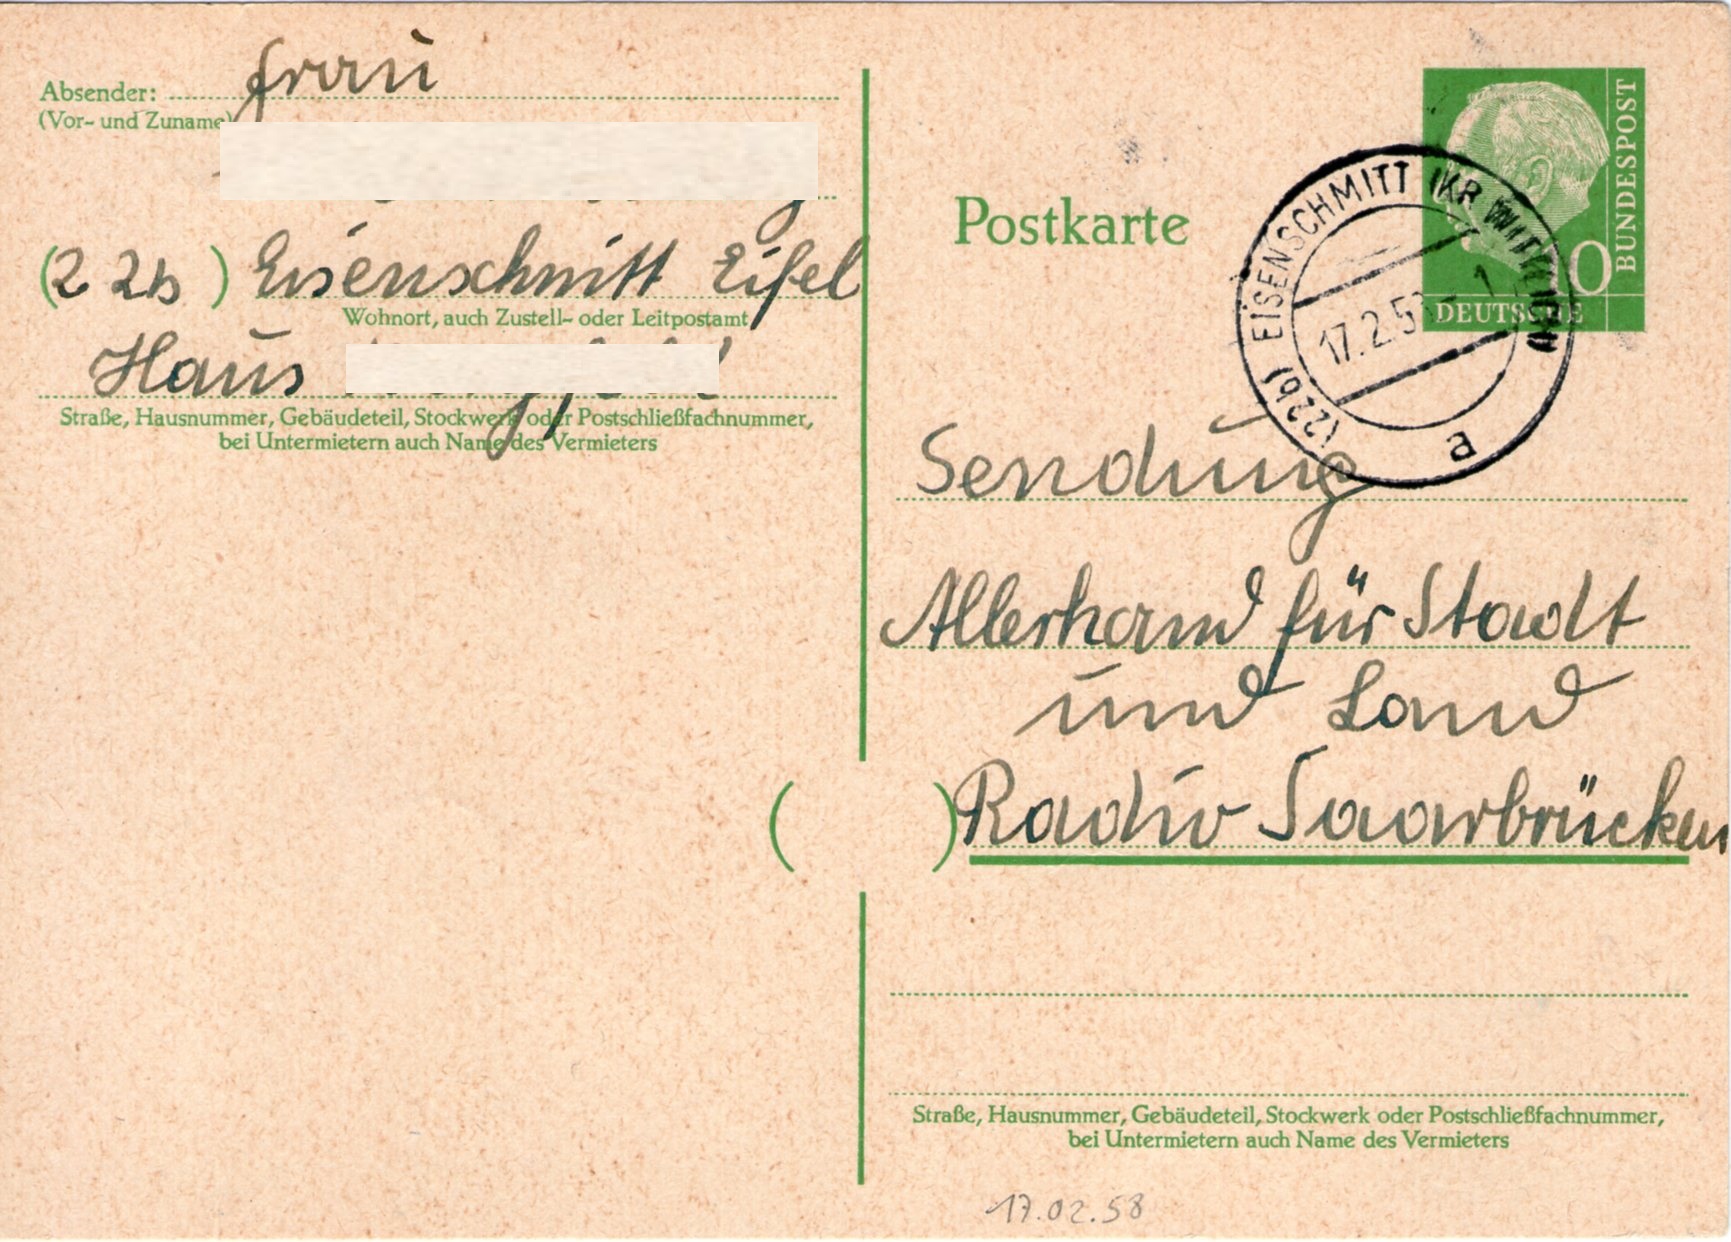 Absender: Frau
(Vor- und Zuname)
(22b) Eisenschmitt Eifel
Wohnort, auch Zustell- oder Leitpostamt
Haus
Straße, Hausnummer, Gebäudeteil, Stockwerk oder Postschließfachnummer,
bei Untermietern auch Name des Vermieters
Postkarte
10
DEUTSCHE
BUNDESPOST
(22b) EISENSCHMITT (KR WITTLICH)
17.2.58
a
Sendung
Allerhand für Stadt
und Land
( ) Radio Saarbrücken
Straße, Hausnummer, Gebäudeteil, Stockwerk oder Postschließfachnummer,
bei Untermietern auch Name des Vermieters
17.02.58